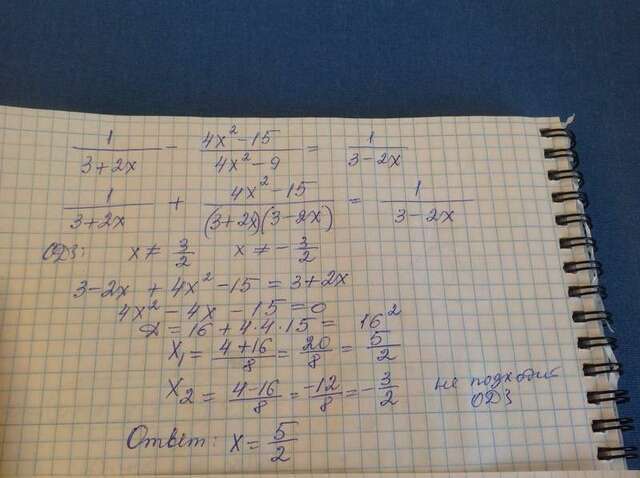 1/(3+2x) - (4x²-15)/(4x²-9) = 1/(3-2x)
1/(3+2x) + (4x²-15)/((3+2x)(3-2x)) = 1/(3-2x)
ОДЗ: x ≠ 3/2 x ≠ -3/2
3-2x + 4x²-15 = 3+2x
4x² - 4x - 15 = 0
D = 16 + 4·4·15 = 16²
x₁ = (4+16)/8 = 20/8 = 5/2
x₂ = (4-16)/8 = -12/8 = -3/2 не подходит ОДЗ
Ответ: x = 5/2